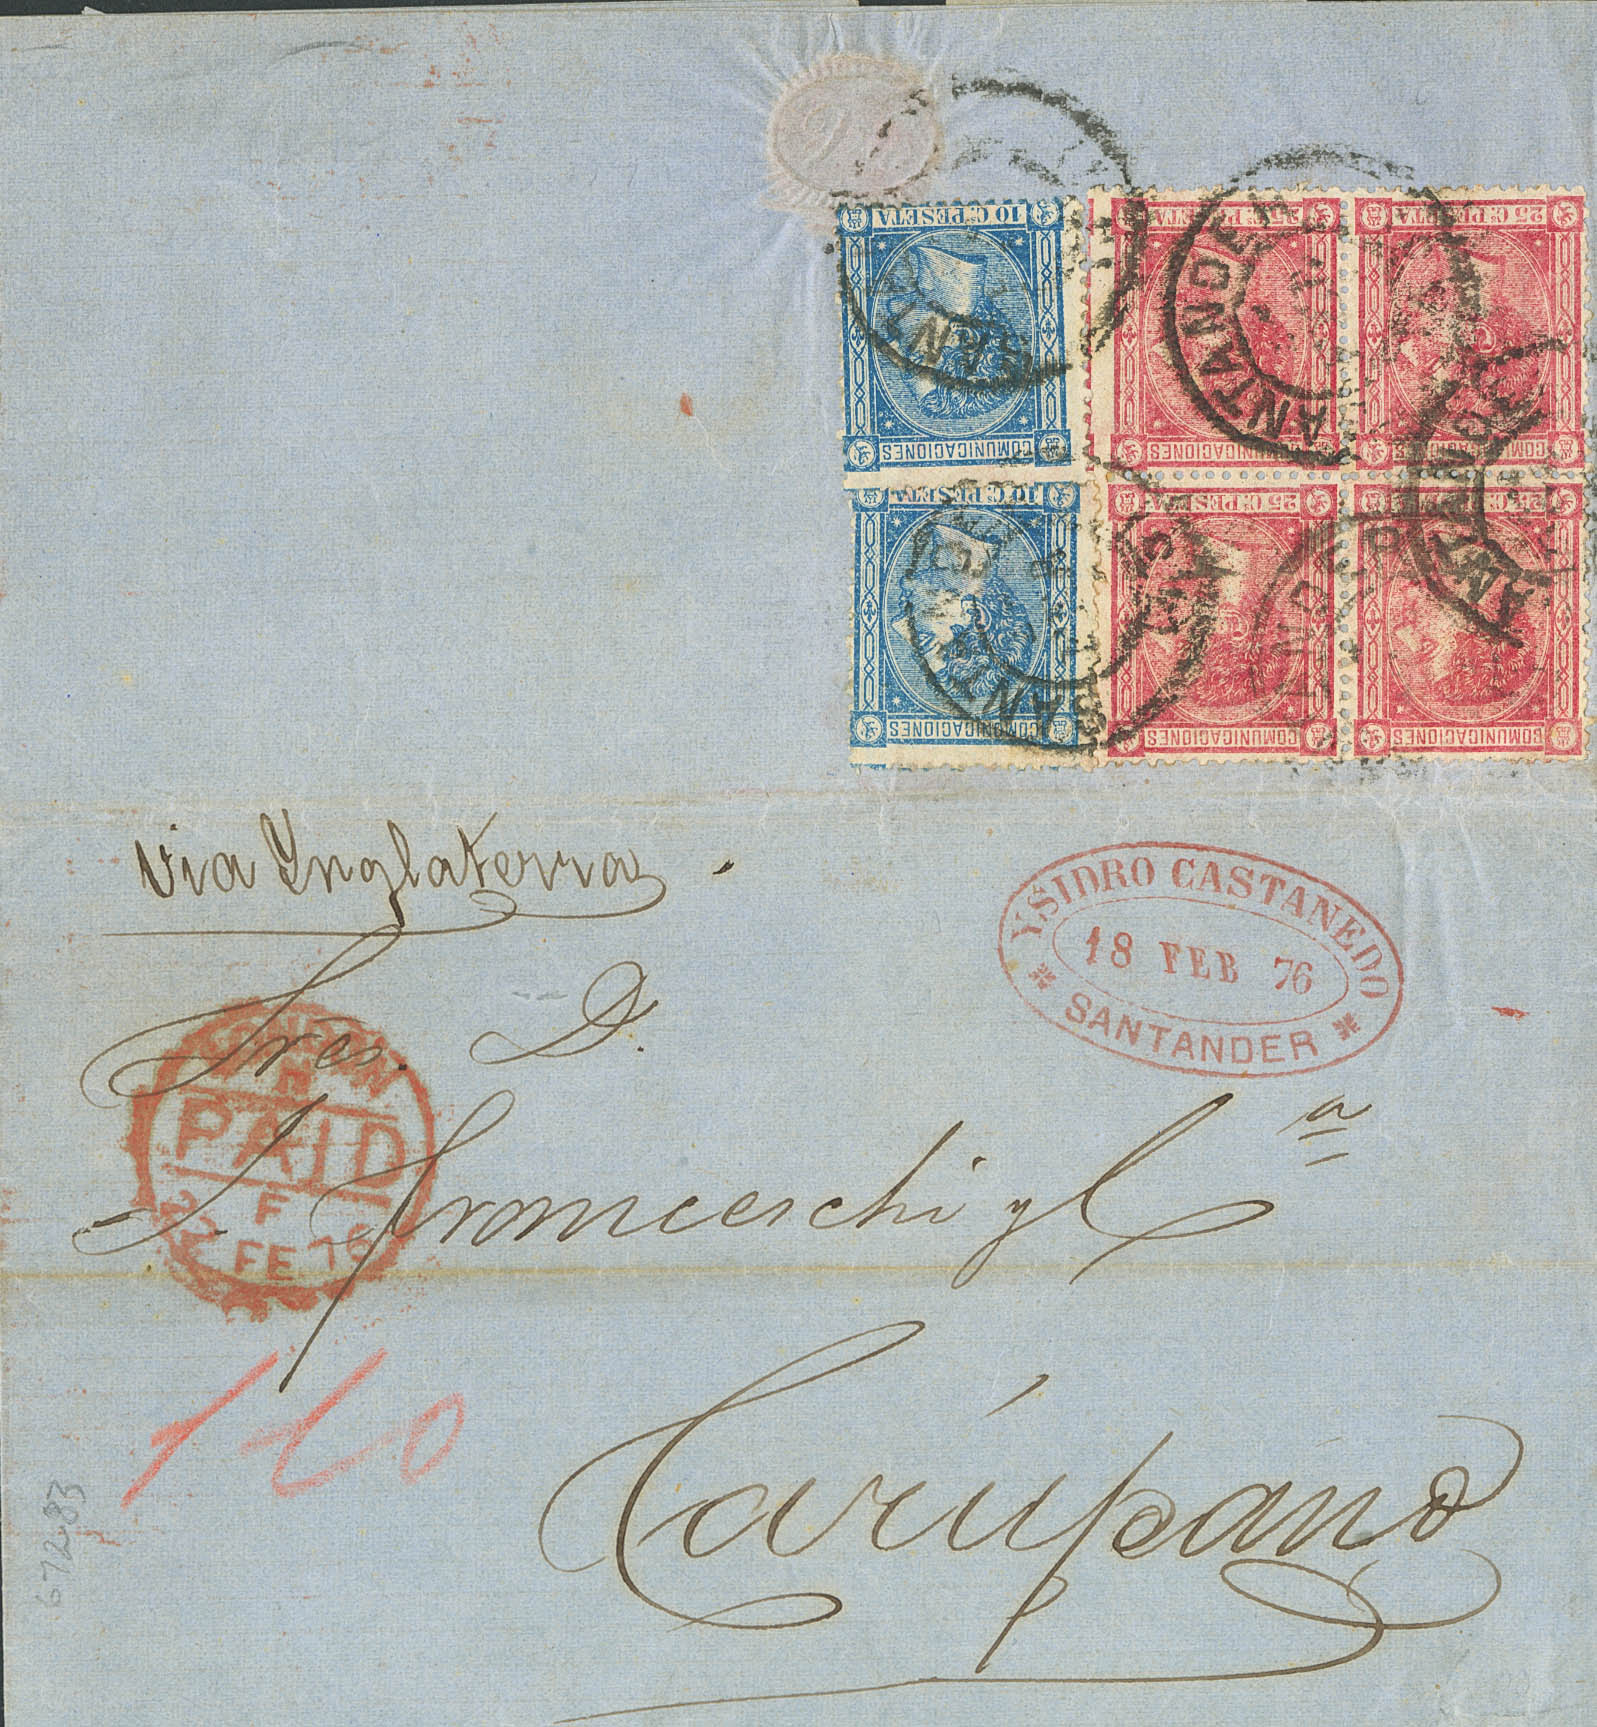 10 Cs PESETA
COMUNICACIONES
10 Cs PESETA
COMUNICACIONES
25 Cs PESETA
COMUNICACIONES
25 Cs PESETA
COMUNICACIONES
25 Cs PESETA
COMUNICACIONES
COMUNICACIONES
SANTANDER
via Ynglaterra
YSIDRO CASTANEDO
18 FEB 76
SANTANDER
Sres. D.
J. Franceschi y Cª
Carúpano
LONDON
PAID
F
22 FE 76
1-60
67283